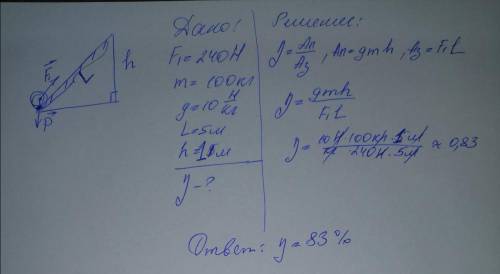 Дано:
F₁ = 240Н
m = 100кг
g = 10 Н/кг
L = 5м
h = 1м
η - ?
Решение:
η = Aп/Aз, Aп = gmh, Aз = F₁L
η = gmh/F₁L
η = 10Н·100кг·1м/кг 240Н·5м ≈ 0,83
Ответ: η = 83%
F₁
L
h
P